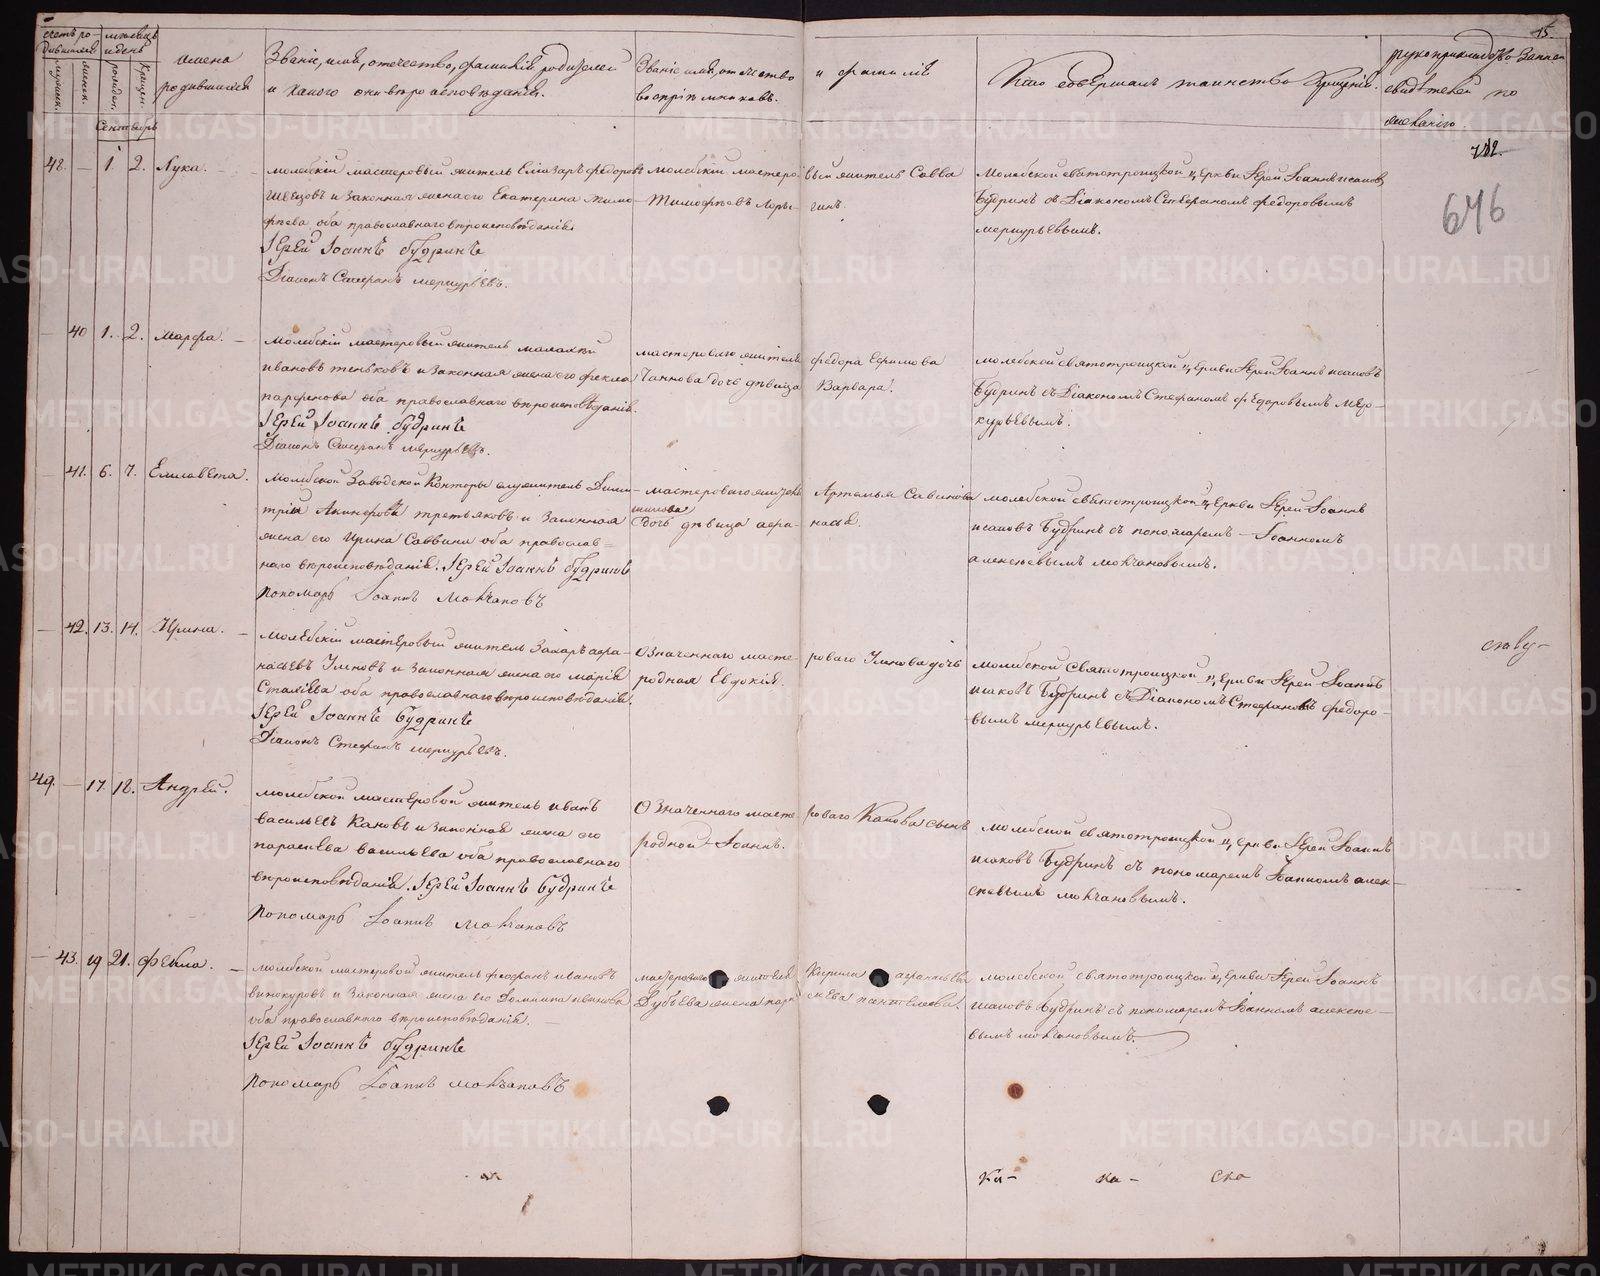 15.
счетъ ро-
дившихся
мужеск.
женск.
месяцъ
и день
рожден.
крещен.
имена
родившихся
Званіе, имя, отечество, фамилія родителей
и какого они вѣроисповѣданія.
Званіе имя, отечество и фамилія
воспріемниковъ.
Кто совершалъ таинство крещенія.
рукоприкладство
свидѣтелей по
желанію.
Сентябрь
782.
646
48. — 1 2. Лука.
молебскій мастеровый житель Елизаръ федоровъ
Швецовъ и законная жена его Екатерина Тимо-
фѣева оба православнаго вѣроисповѣданія.
Іерей Іоаннъ Будринъ
Діаконъ Стефанъ меркурьевъ.
молебскій мастеро- вый житель Савва
Тимофѣевъ
Молебской святотроицкой церкви Іерей Іоаннъ исаковъ
Будринъ съ Діакономъ Стефаномъ федоровымъ
меркурьевымъ.
— 40 1. 2. Марфа. —
молебскій мастеровый житель малахій
ивановъ теньковъ и законная жена его фекла
парфенова оба православнаго вѣроисповѣданія.
Іерей Іоаннъ Будринъ
Діаконъ Стефанъ меркурьевъ.
мастероваго жителя федора Ефимова
дочь дѣвица Варвара.
молебской святотроицкой церкви Іерей Іоаннъ исаковъ
Будринъ съ Діакономъ Стефаномъ федоровымъ мер-
курьевымъ.
— 41. 6. 7. Елисавета.
молебской Заводской Конторы служитель Дими-
трій Акинфовъ третьяковъ и Законная
жена его Ирина Саввина оба православ-
наго вѣроисповѣданія. Іерей Іоаннъ Будринъ
Пономарь Іоаннъ Молчановъ
мастероваго жителя Артемья Савинова
дочь дѣвица афа- насія.
молебской святотроицкой церкви Іерей Іоаннъ
исаковъ Будринъ съ пономаремъ Іоанномъ
алексеевымъ молчановымъ.
— 42. 13. 14. Ирина. —
молебскій мастеровый житель Захаръ афа-
насьевъ Ужновъ и законная жена его марія
оба православнаго вѣроисповѣданія.
Іерей Іоаннъ Будринъ
Діаконъ Стефанъ меркурьевъ.
Означеннаго масте- роваго Ужнова дочь
родная Евдокія.
молебской святотроицкой церкви Іерей Іоаннъ
исаковъ Будринъ съ Діакономъ Стефаномъ федоро-
вымъ меркурьевымъ.
49. — 17. 18. Андрей.
молебской мастеровой житель иванъ
васильевъ Кановъ и законная жена его
параскева васильева оба православнаго
вѣроисповѣданія. Іерей Іоаннъ Будринъ
Пономарь Іоаннъ Молчановъ
Означеннаго масте- роваго Канова сынъ
родной Іоаннъ.
молебской святотроицкой церкви Іерей Іоаннъ
исаковъ Будринъ съ пономаремъ Іоанномъ алек-
сеевымъ молчановымъ.
— 43. 19 21. Фекла. —
молебской мастеровой житель феофанъ ивановъ
винокуровъ и Законная жена его Домника иванова
оба православнаго вѣроисповѣданія. —
Іерей Іоаннъ Будринъ
Пономарь Іоаннъ Молчановъ
мастероваго жителя Кирила афанасьева
Зубъева жена парас- кева пантелеева.
молебской святотроицкой церкви Іерей Іоаннъ
исаковъ Будринъ съ пономаремъ Іоанномъ алексее-
вымъ молчановымъ.
METRIKI.GASO-URAL.RU